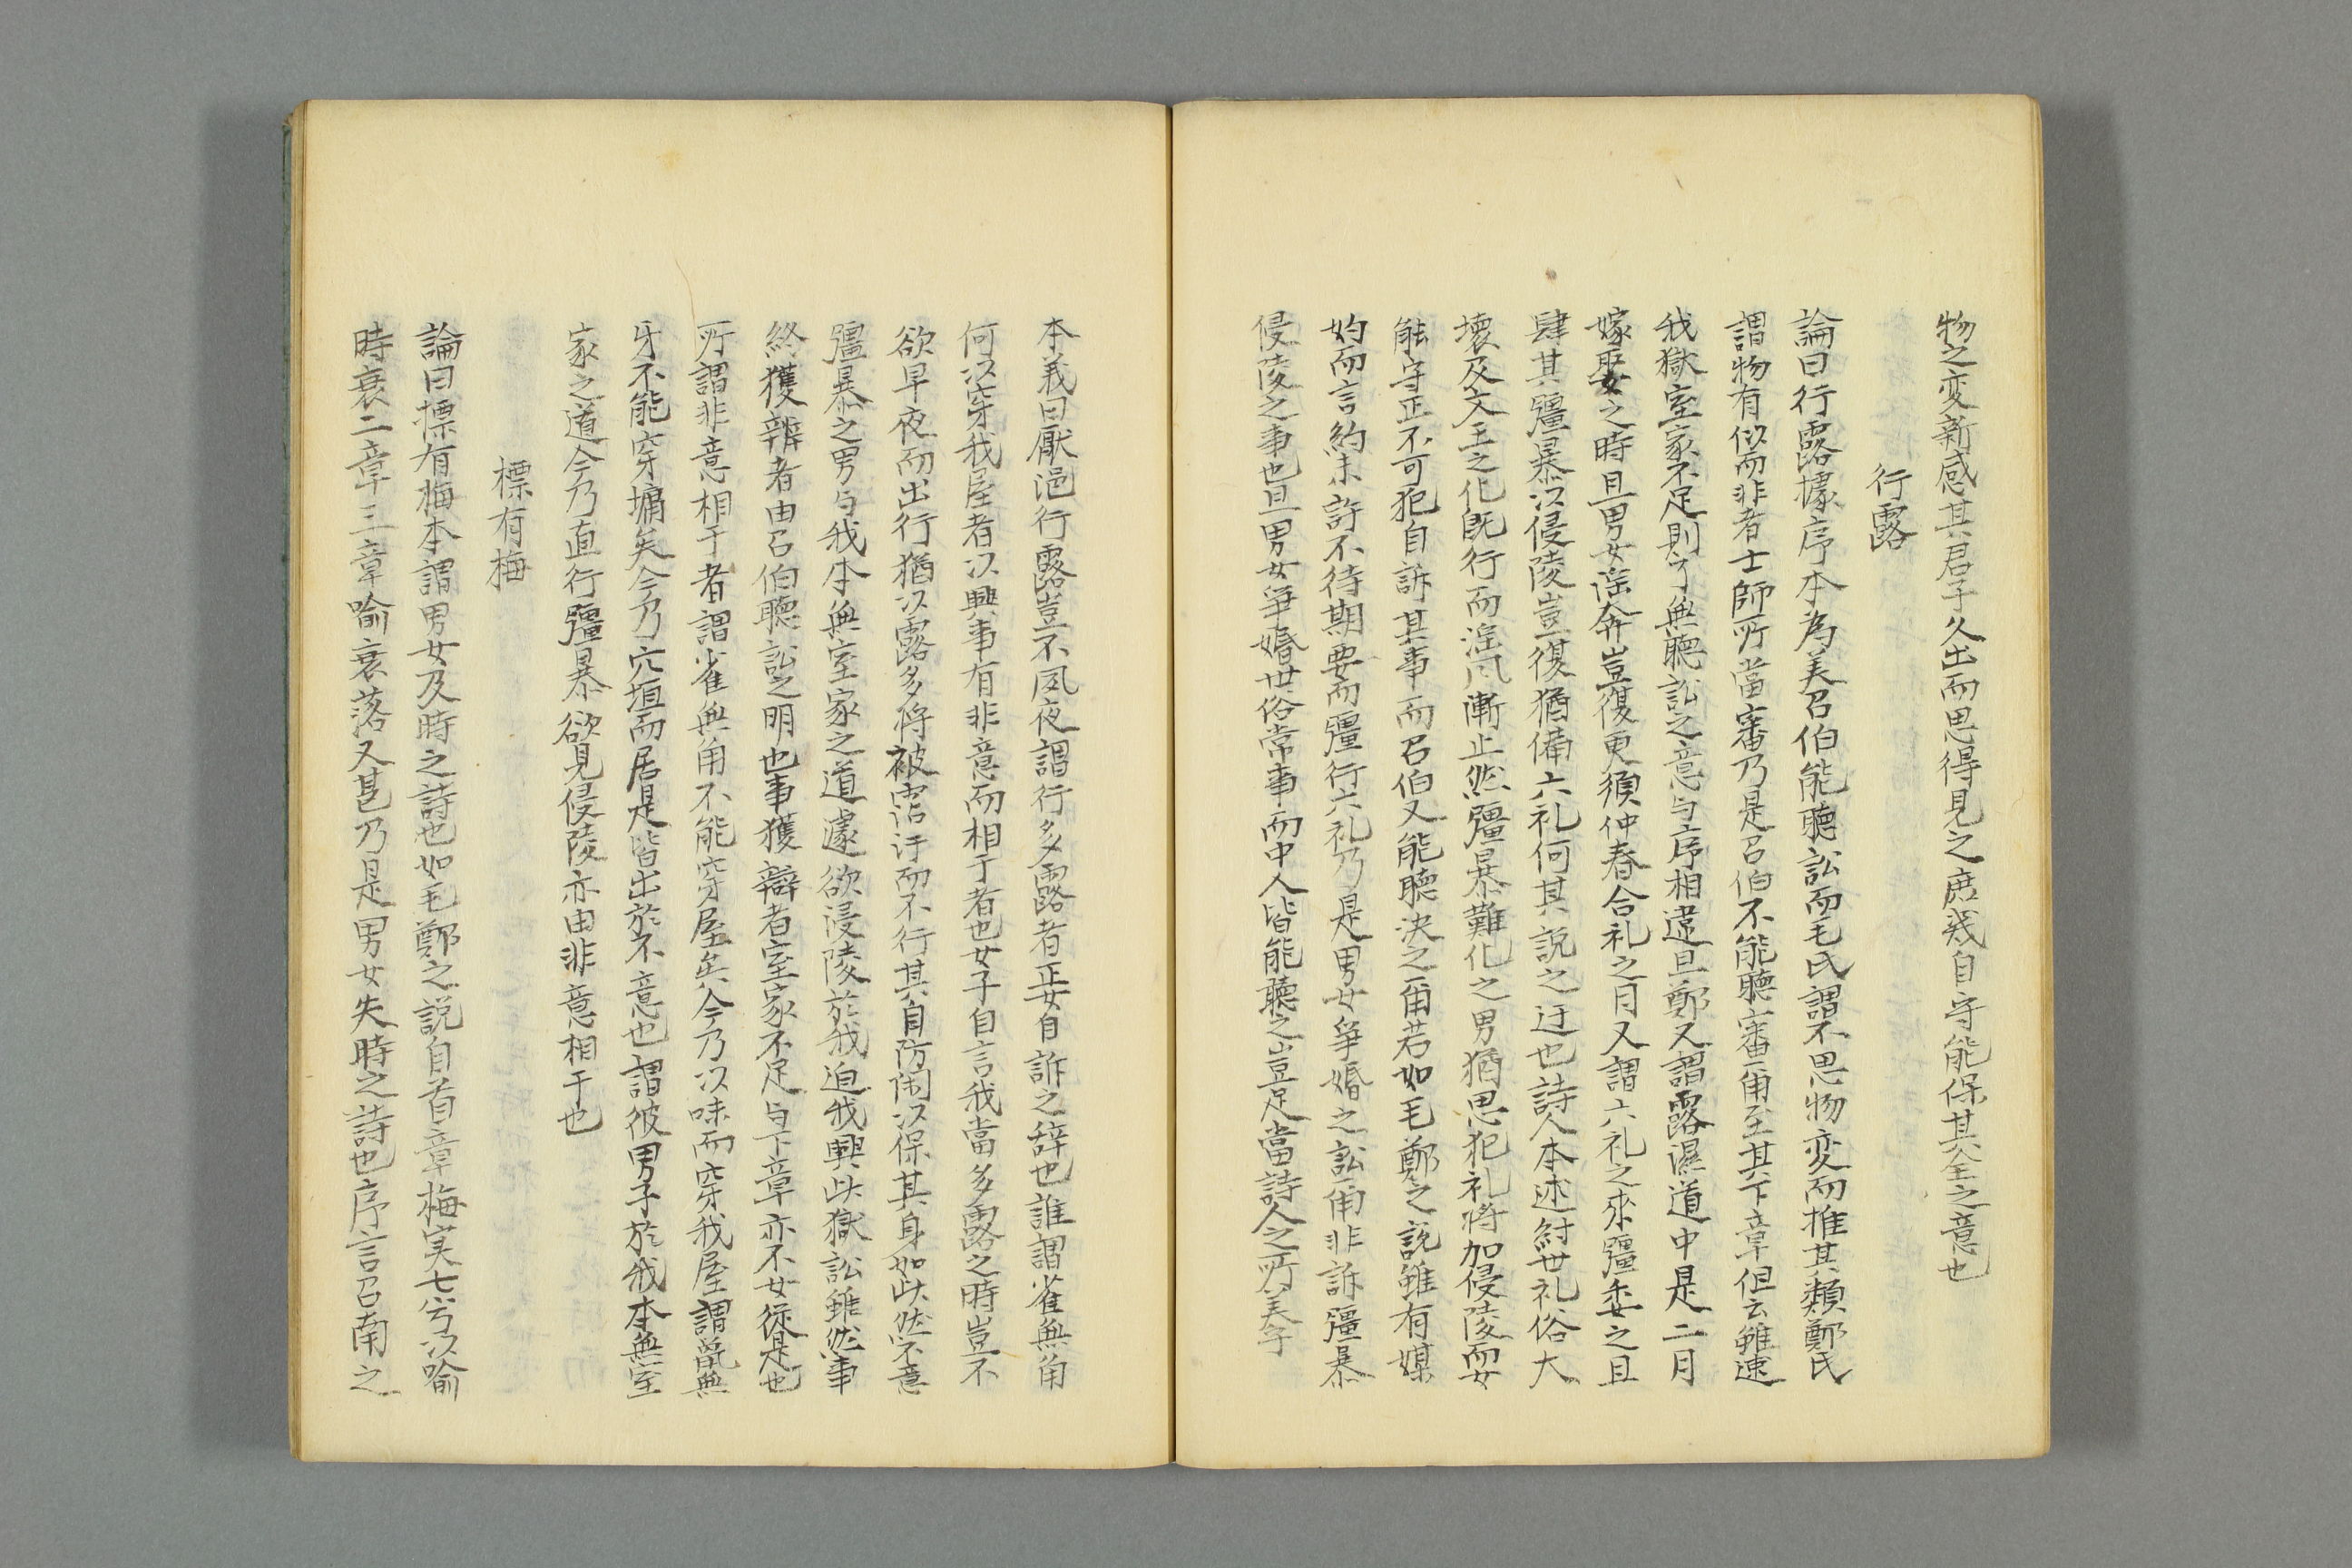 物之変新感其君子久出而思得見之庶㡬自守能保其全之意也
行露
論曰行露據序本為美召伯能聽訟而毛氏謂不思物変而推其類鄭氏
謂物有似而非者士師所當審乃是召伯不能聽審爾至其下章但云雖速
我獄室家不足則了無聽訟之意与序相違且鄭又謂露濕道中是二月
嫁娶之時且男女淫奔豈復更須仲春合礼之月又謂六礼之來彊委之且
肆其彊暴以侵陵豈復猶備六礼何其説之迂也詩人本述紂世礼俗大
壞及文王之化既行而淫風漸止然彊暴難化之男猶思犯礼將加侵陵而女
能守正不可犯自訴其事而召伯又能聽決之爾若如毛鄭之説雖有媒
妁而言約未許不待期要而彊行六礼乃是男女爭婚之訟爾非訴彊暴
侵陵之事也且男女爭婚世俗常事而中人皆能聽之豈足當詩人之所美乎
本義曰厭浥行露豈不夙夜謂行多露者正女自訴之辞也誰謂雀無角
何以穿我屋者以興事有非意而相干者也女子自言我當多露之時豈不
欲早夜而出行猶以露多将被霑汙而不行其自防閑以保其身如此然不意
彊暴之男与我本無室家之道遽欲浸陵於我迫我興此獄訟雖然事
終獲辨者由召伯聽訟之明也事獲辯者室家不足与下章亦不女從是也
所謂非意相干者謂雀無角不能穿屋矣今乃以味而穿我屋謂鼠無
牙不能穿墉矣今乃穴垣而居是皆出於不意也謂彼男子於我本無室
家之道今乃直行彊暴欲見侵陵亦由非意相干也
標有梅
論曰摽有梅本謂男女及時之詩也如毛鄭之説自首章梅実七兮以喻
時衰二章三章喻衰落又甚乃是男女失時之詩也序言召南之